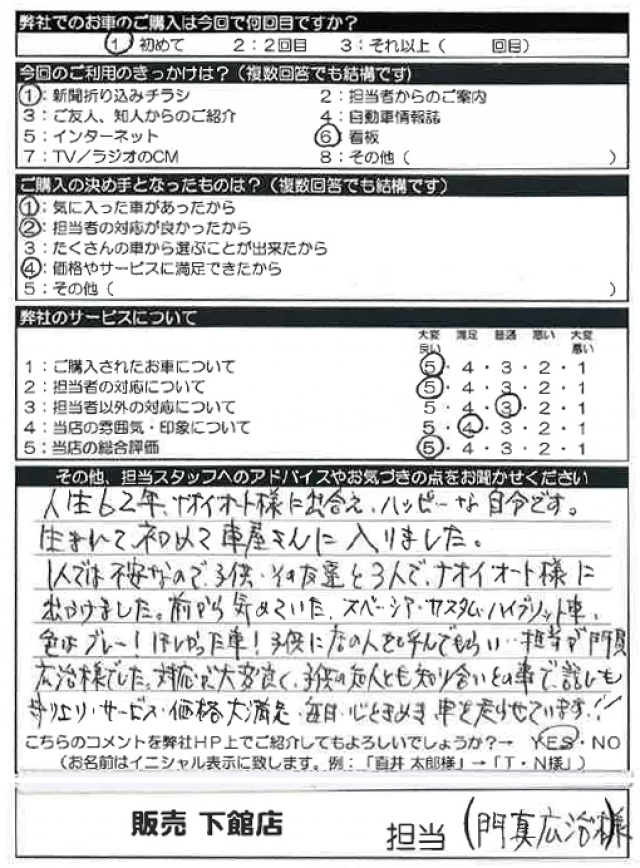 弊社でのお車のご購入は今回で何回目ですか?
1:初めて 2:2回目 3:それ以上( 回目)
今回のご利用のきっかけは?(複数回答でも結構です)
1:新聞折り込みチラシ 2:担当者からのご案内
3:ご友人、知人からのご紹介 4:自動車情報誌
5:インターネット 6:看板
7:TV/ラジオのCM 8:その他( )
ご購入の決め手となったものは?(複数回答でも結構です)
1:気に入った車があったから
2:担当者の対応が良かったから
3:たくさんの車から選ぶことが出来たから
4:価格やサービスに満足できたから
5:その他( )
弊社のサービスについて
大変良い 満足 普通 悪い 大変悪い
1:ご購入されたお車について 5・4・3・2・1
2:担当者の対応について 5・4・3・2・1
3:担当者以外の対応について 5・4・3・2・1
4:当店の雰囲気・印象について 5・4・3・2・1
5:当店の総合評価 5・4・3・2・1
その他、担当スタッフへのアドバイスやお気づきの点をお聞かせください
人生62年、ナオイオート様に出合え、ハッピーな自分です。
生まれて初めて車屋さんに入りました。
1人では不安なので、子供・その友達と3人で、ナオイオート様に
出かけました。前から気めていた、スペーシア・カスタム・ハイブリット車、
色はブレー!ほしかった車!子供に店の人を呼んでもらい…担当が門真
広治様でした。対応が大変良く、子供の知人とも知り合いとの事で、話しも
もりより・サービス・価格大満足、毎日・心ときめき、車を走らせています!!
こちらのコメントを弊社HP上でご紹介してもよろしいでしょうか?→ YES・NO
(お名前はイニシャル表示に致します。例:「直井 太郎様」→「T・N様」)
販売 下館店 担当(門真広治様)